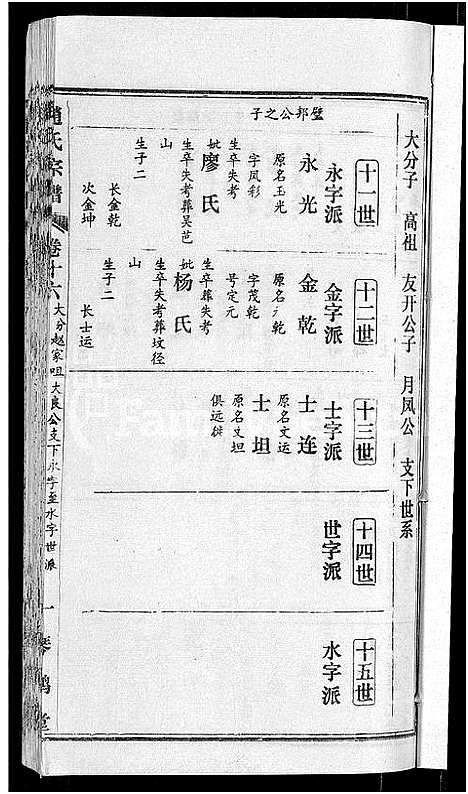 大分子 高祖 友开公子 月凤公 支下世系
十一世
永字派
璧邦公之子
永光
原名玉光
字凤彩
生卒失考
妣廖氏
生卒失考葬吴芭
山
生子二
长金乾
次金坤
十二世
金字派
金乾
原名元乾
字茂乾
号定元
生卒葬失考
妣杨氏
生卒失考葬坟径
山
生子二
长士运
十三世
士字派
士连
原名文运
士坦
原名文坦
俱远徙
十四世
世字派
十五世
水字派
赵氏宗谱 卷十六 大分赵家咀大良公支下永字至水字世派 一 琴鹤堂